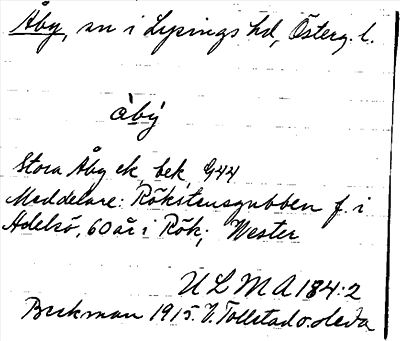 Åby, sn i Lysings hd, Österg. l.
àbý
Stora Åby ek. bek. G44
Meddelare: Rökstensgubben f. i
Adelsö, 60 år i Rök; Wester
ULMA 184:2
Beckman 1915. V. Tollstad o. Heda